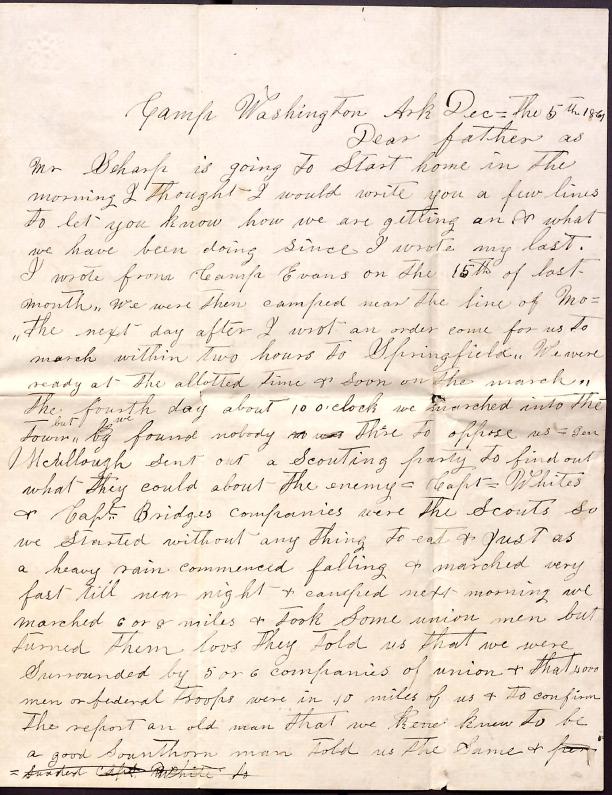 Camp Washington Ark Dec = the 5th 1861
Dear father as
Mr Scharp is going to Start home in the
morning I thought I would write you a few lines
to let you know how we are getting an & what
we have been doing since I wrote my last.
I wrote from Camp Evans on the 15th of last
month,, We were then camped near the line of Mo=
,,the next day after I wrot an order come for us to
march within two hours to Springfield,, We were
ready at the allotted time & soon on the march,,
the fourth day about 10 o'clock we marched into the
town,, but we found nobody thire to oppose us = Gen
McCullough sent out a Scouting party to find out
what they could about the enemy = Capt = Whites
& Capt. Bridges companies were the Scouts So
we Started without any thing to eat & Just as
a heavy rain commenced falling & marched very
fast till near night & camped next morning we
marched 6 or 8 miles & took Some union men but
turned them loos they told us that we were
Surrounded by 5 or 6 companies of union & that 4000
men or federal troops were in 10 miles of us & to confirm
the report an old man that we knew to be
a good Sounthorn man told us the Same &
= Capt White to